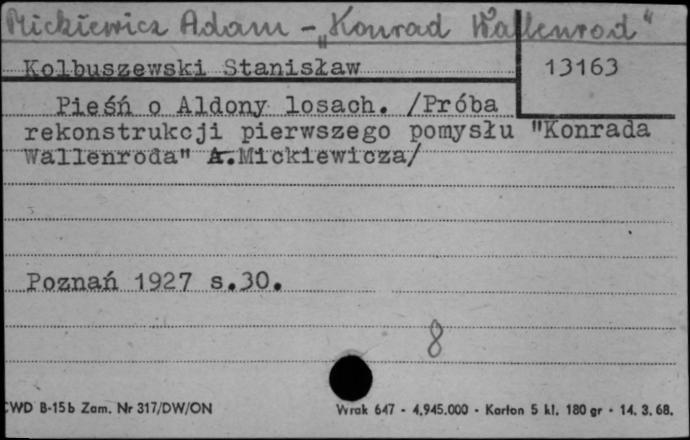 Mickiewicz Adam - "Konrad Wallenrod"
Kolbuszewski Stanisław 13163
Pieśń o Aldony losach. /Próba
rekonstrukcji pierwszego pomysłu "Konrada
Wallenroda" A.Mickiewicza/
Poznań 1927 s.30.
8
CWD B-15b Zam. Nr 317/DW/ON Wrak 647 - 4.945.000 - Karton 5 kl. 180 gr - 14. 3. 68.